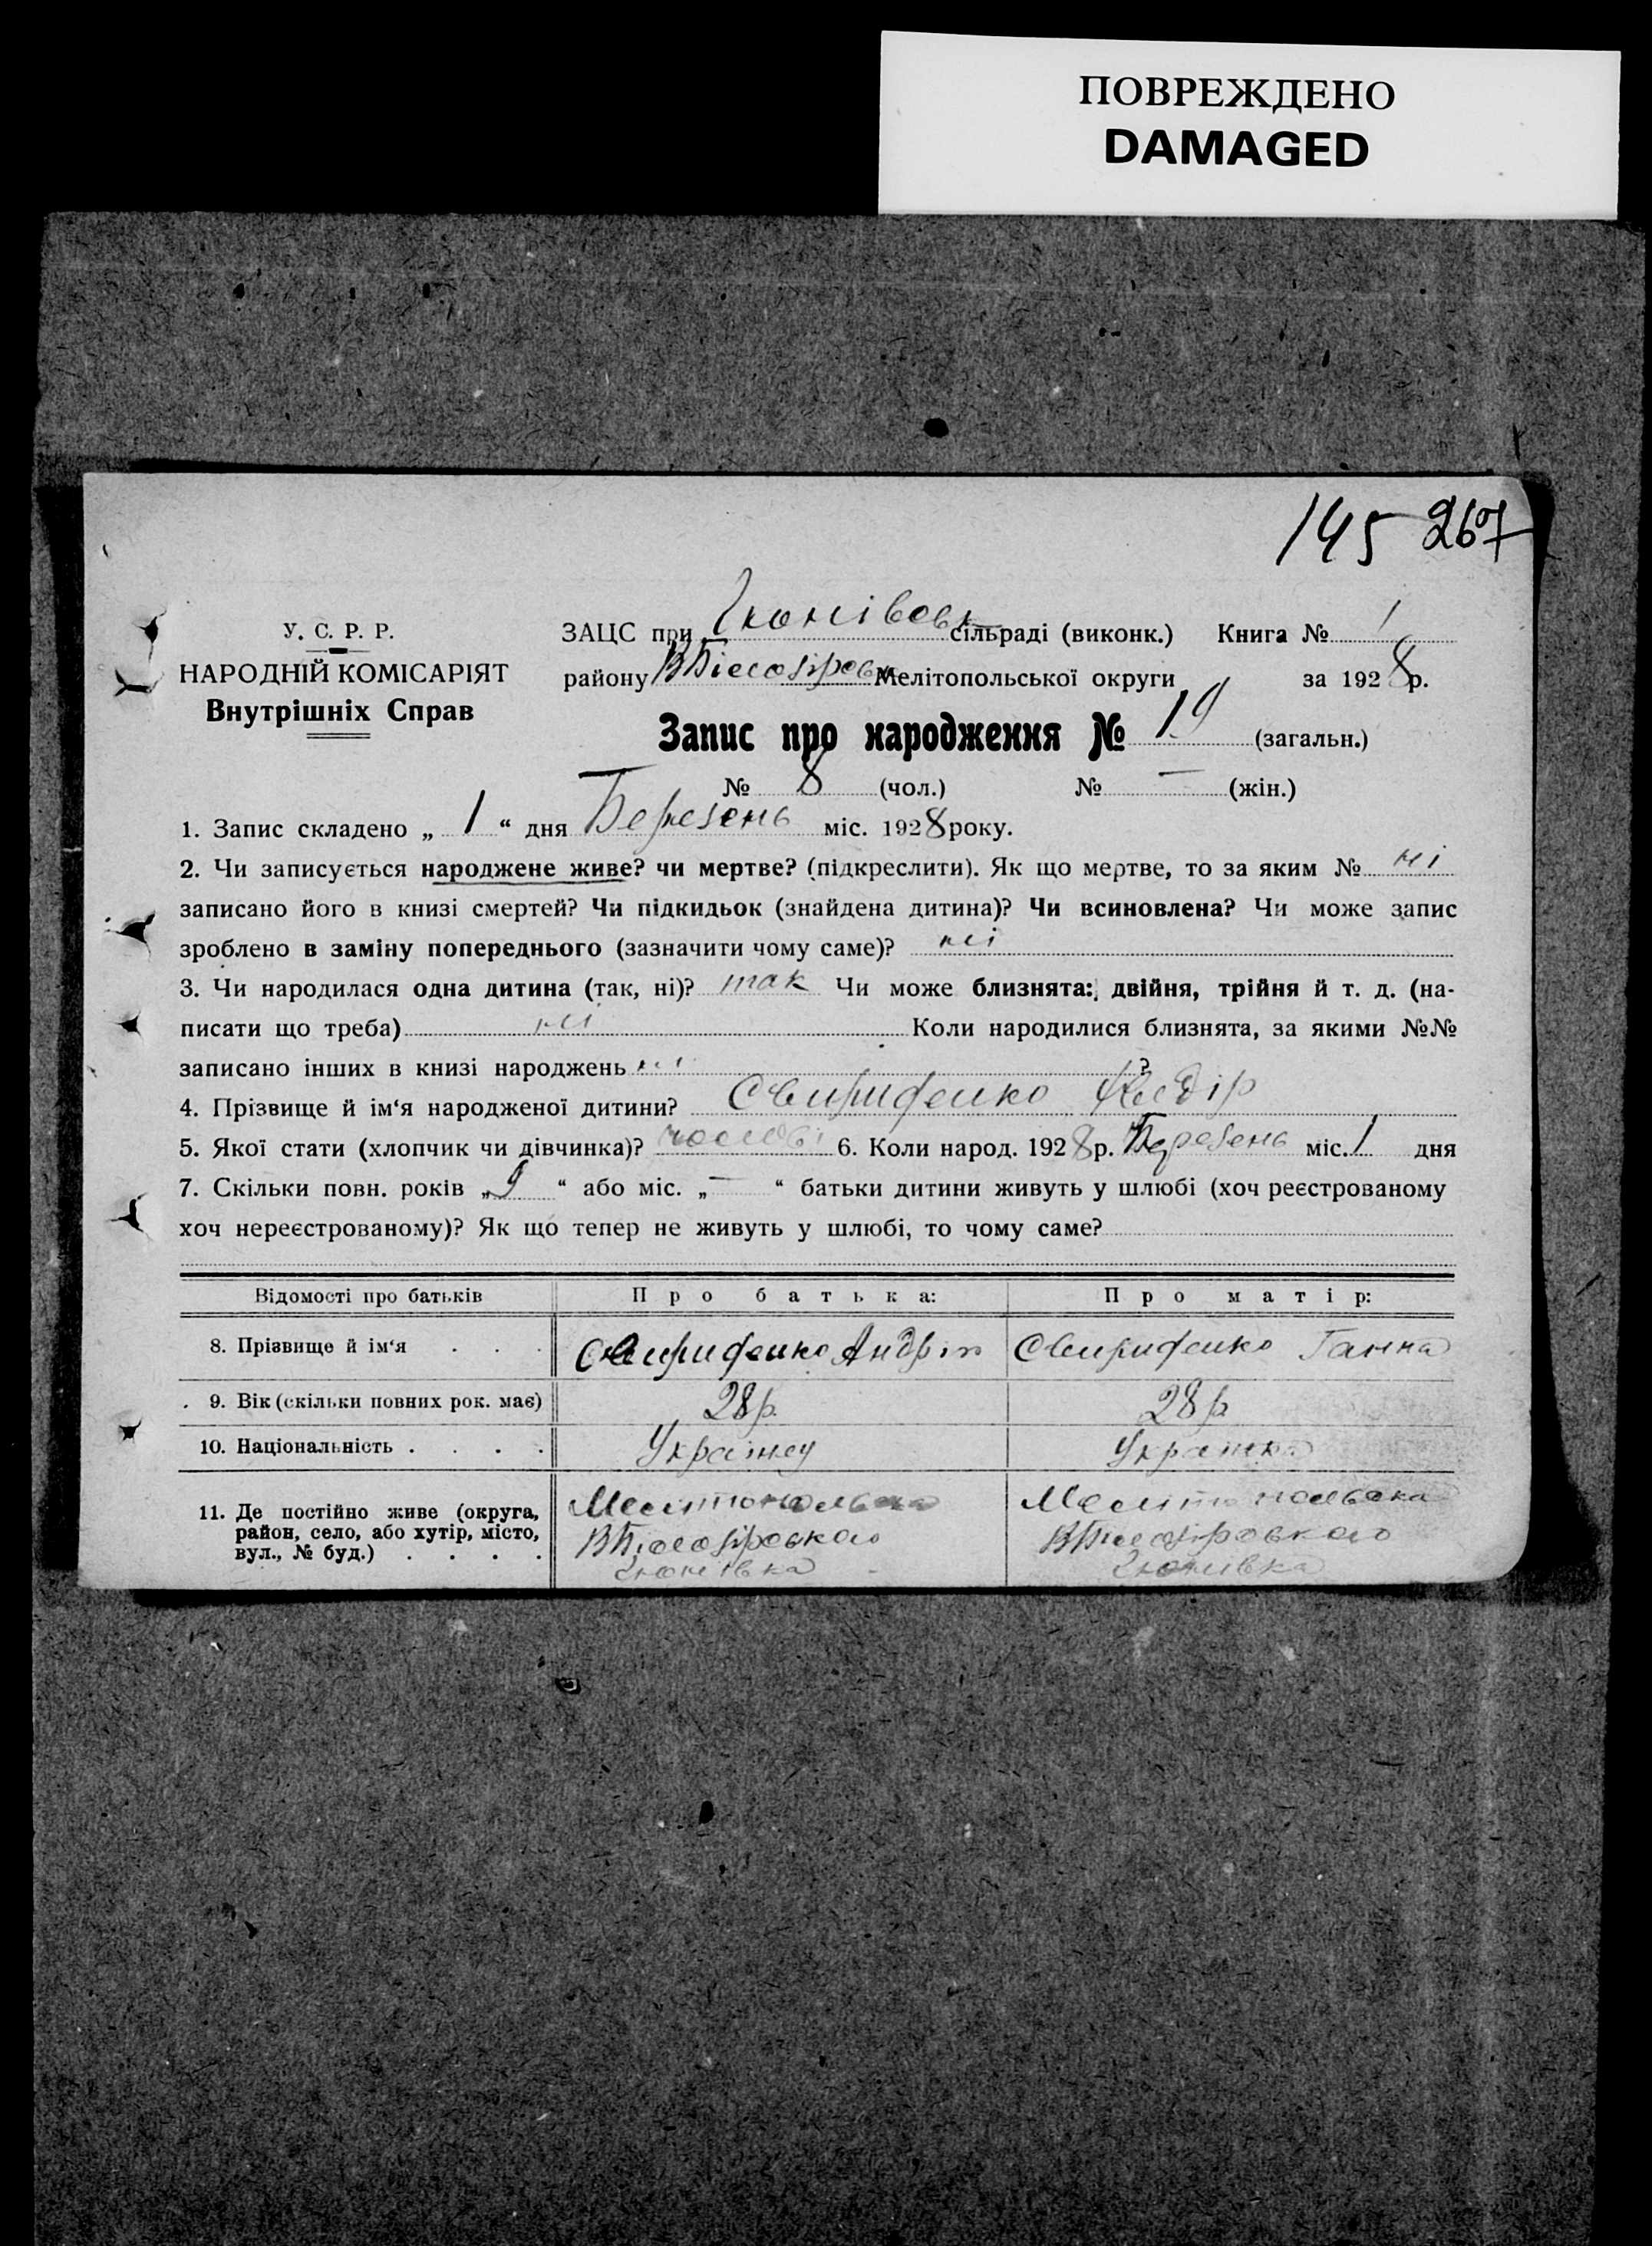 ПОВРЕЖДЕНО
DAMAGED
145 267
У. С. Р. Р.
НАРОДНІЙ КОМІСАРІЯТ
Внутрішніх Справ
ЗАЦС при сільраді (виконк.) Книга № 1
району Мелітопольської округи за 1928 р.
Запис про народження № 19 (загальн.)
№ 8 (чол.) № — (жін.)
1. Запис складено „ 1 “ дня Березень міс. 1928 року.
2. Чи записується народжене живе? чи мертве? (підкреслити). Як що мертве, то за яким № ні
записано його в книзі смертей? Чи підкидьок (знайдена дитина)? Чи всиновлена? Чи може запис
зроблено в заміну попереднього (зазначити чому саме)? ні
3. Чи народилася одна дитина (так, ні)? так Чи може близнята: двійня, трійня й т. д. (на-
писати що треба) ні Коли народилися близнята, за якими №№
записано інших в книзі народжень ні ?
4. Прізвище й ім‘я народженої дитини? Свириденко Федір
5. Якої стати (хлопчик чи дівчинка)? 6. Коли народ. 1928 р. Березень міс. 1 дня
7. Скільки повн. років „ 9 “ або міс. „ — “ батьки дитини живуть у шлюбі (хоч реєстрованому
хоч нереєстрованому)? Як що тепер не живуть у шлюбі, то чому саме?
Відомості про батьків Про батька: Про матір:
8. Прізвище й ім‘я . . . Свириденко Андрій Свириденко Ганна
9. Вік (скільки повних рок. має) 28 р. 28 р.
10. Національність . . . . Українец Українка
11. Де постійно живе (округа, Мелітопольська Мелітопольська
район, село, або хутір, місто, ВБілозірського ВБілозірського
вул., № буд.) . . . .